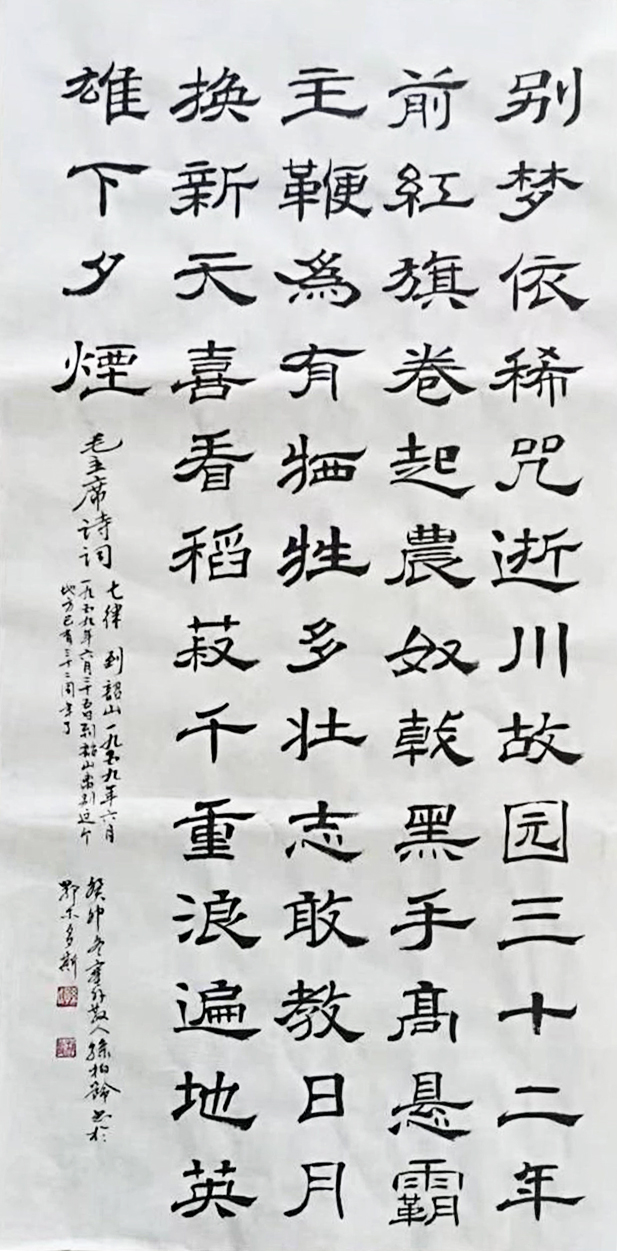 别梦依稀咒逝川故园三十二年
前红旗卷起農奴戟黑手高悬霸
主鞭為有牺牲多壮志敢教日月
换新天喜看稻菽千重浪遍地英
雄下夕煙
毛主席诗词
七律 到韶山 一九五九年六月
一九五九年六月二十五日到韶山离别这个
地方已有三十二周年了
癸卯冬塞外散人徐柏龄书于
鄂尔多斯